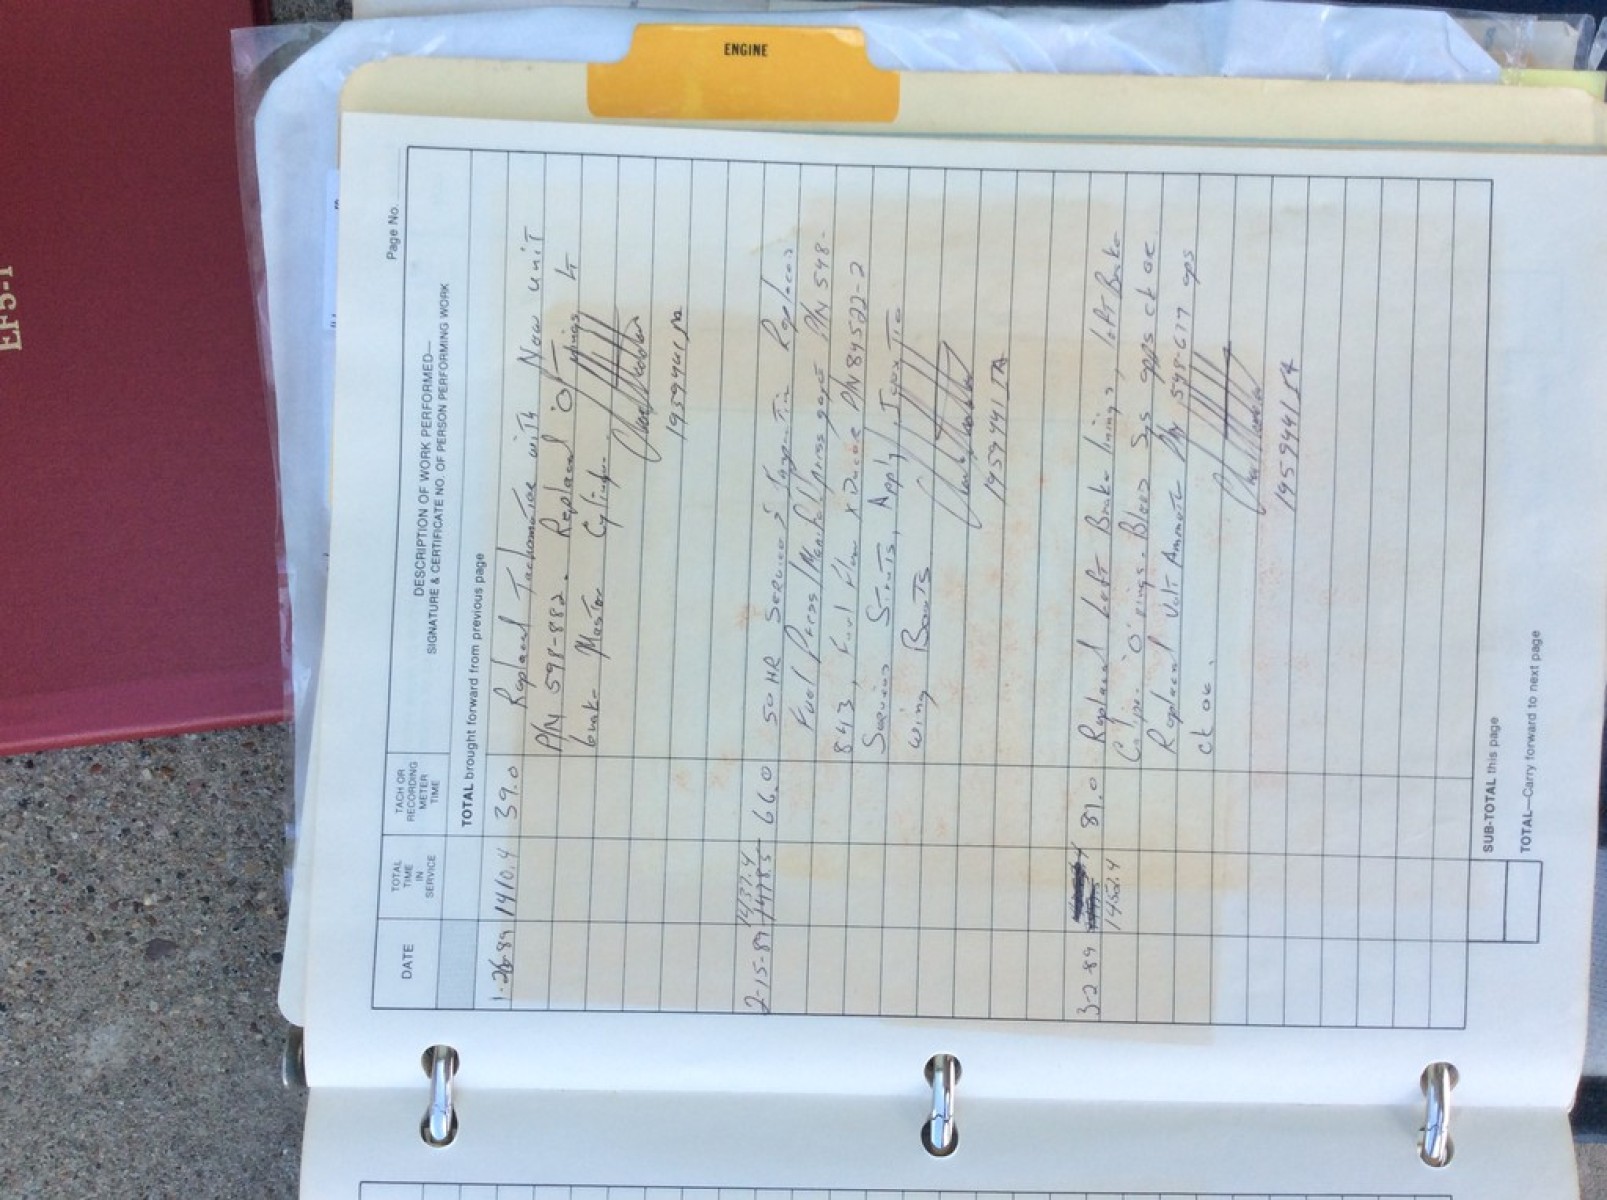 EF5-1
ENGINE
Page No.
DATE
TOTAL
TIME
IN
SERVICE
TACH OR
RECORDING
METER
TIME
DESCRIPTION OF WORK PERFORMED—
SIGNATURE & CERTIFICATE NO. OF PERSON PERFORMING WORK
TOTAL brought forward from previous page
1-26-89 1410.4 39.0 Replaced Tachometer with New unit
P/N 598-882. Replaced "O" rings Lt
brake Master Cylinder.
1437.4
2-15-89 1478.5 66.0 50 HR Service & Replaced
Fuel Press/Manifold Press gage P/N 548-
843, Fuel Flow xDucer P/N 84522-2
Service Struts, Apply
wing Boots
3-2-89 81.0 Replaced Left Brake linings, left Brake
1452.4
Caliper "O" rings. Bleed Sys opps ck ok
Replaced Volt Ammeter P/N 548-677 ops
ck ok.
SUB-TOTAL this page
TOTAL—Carry forward to next page